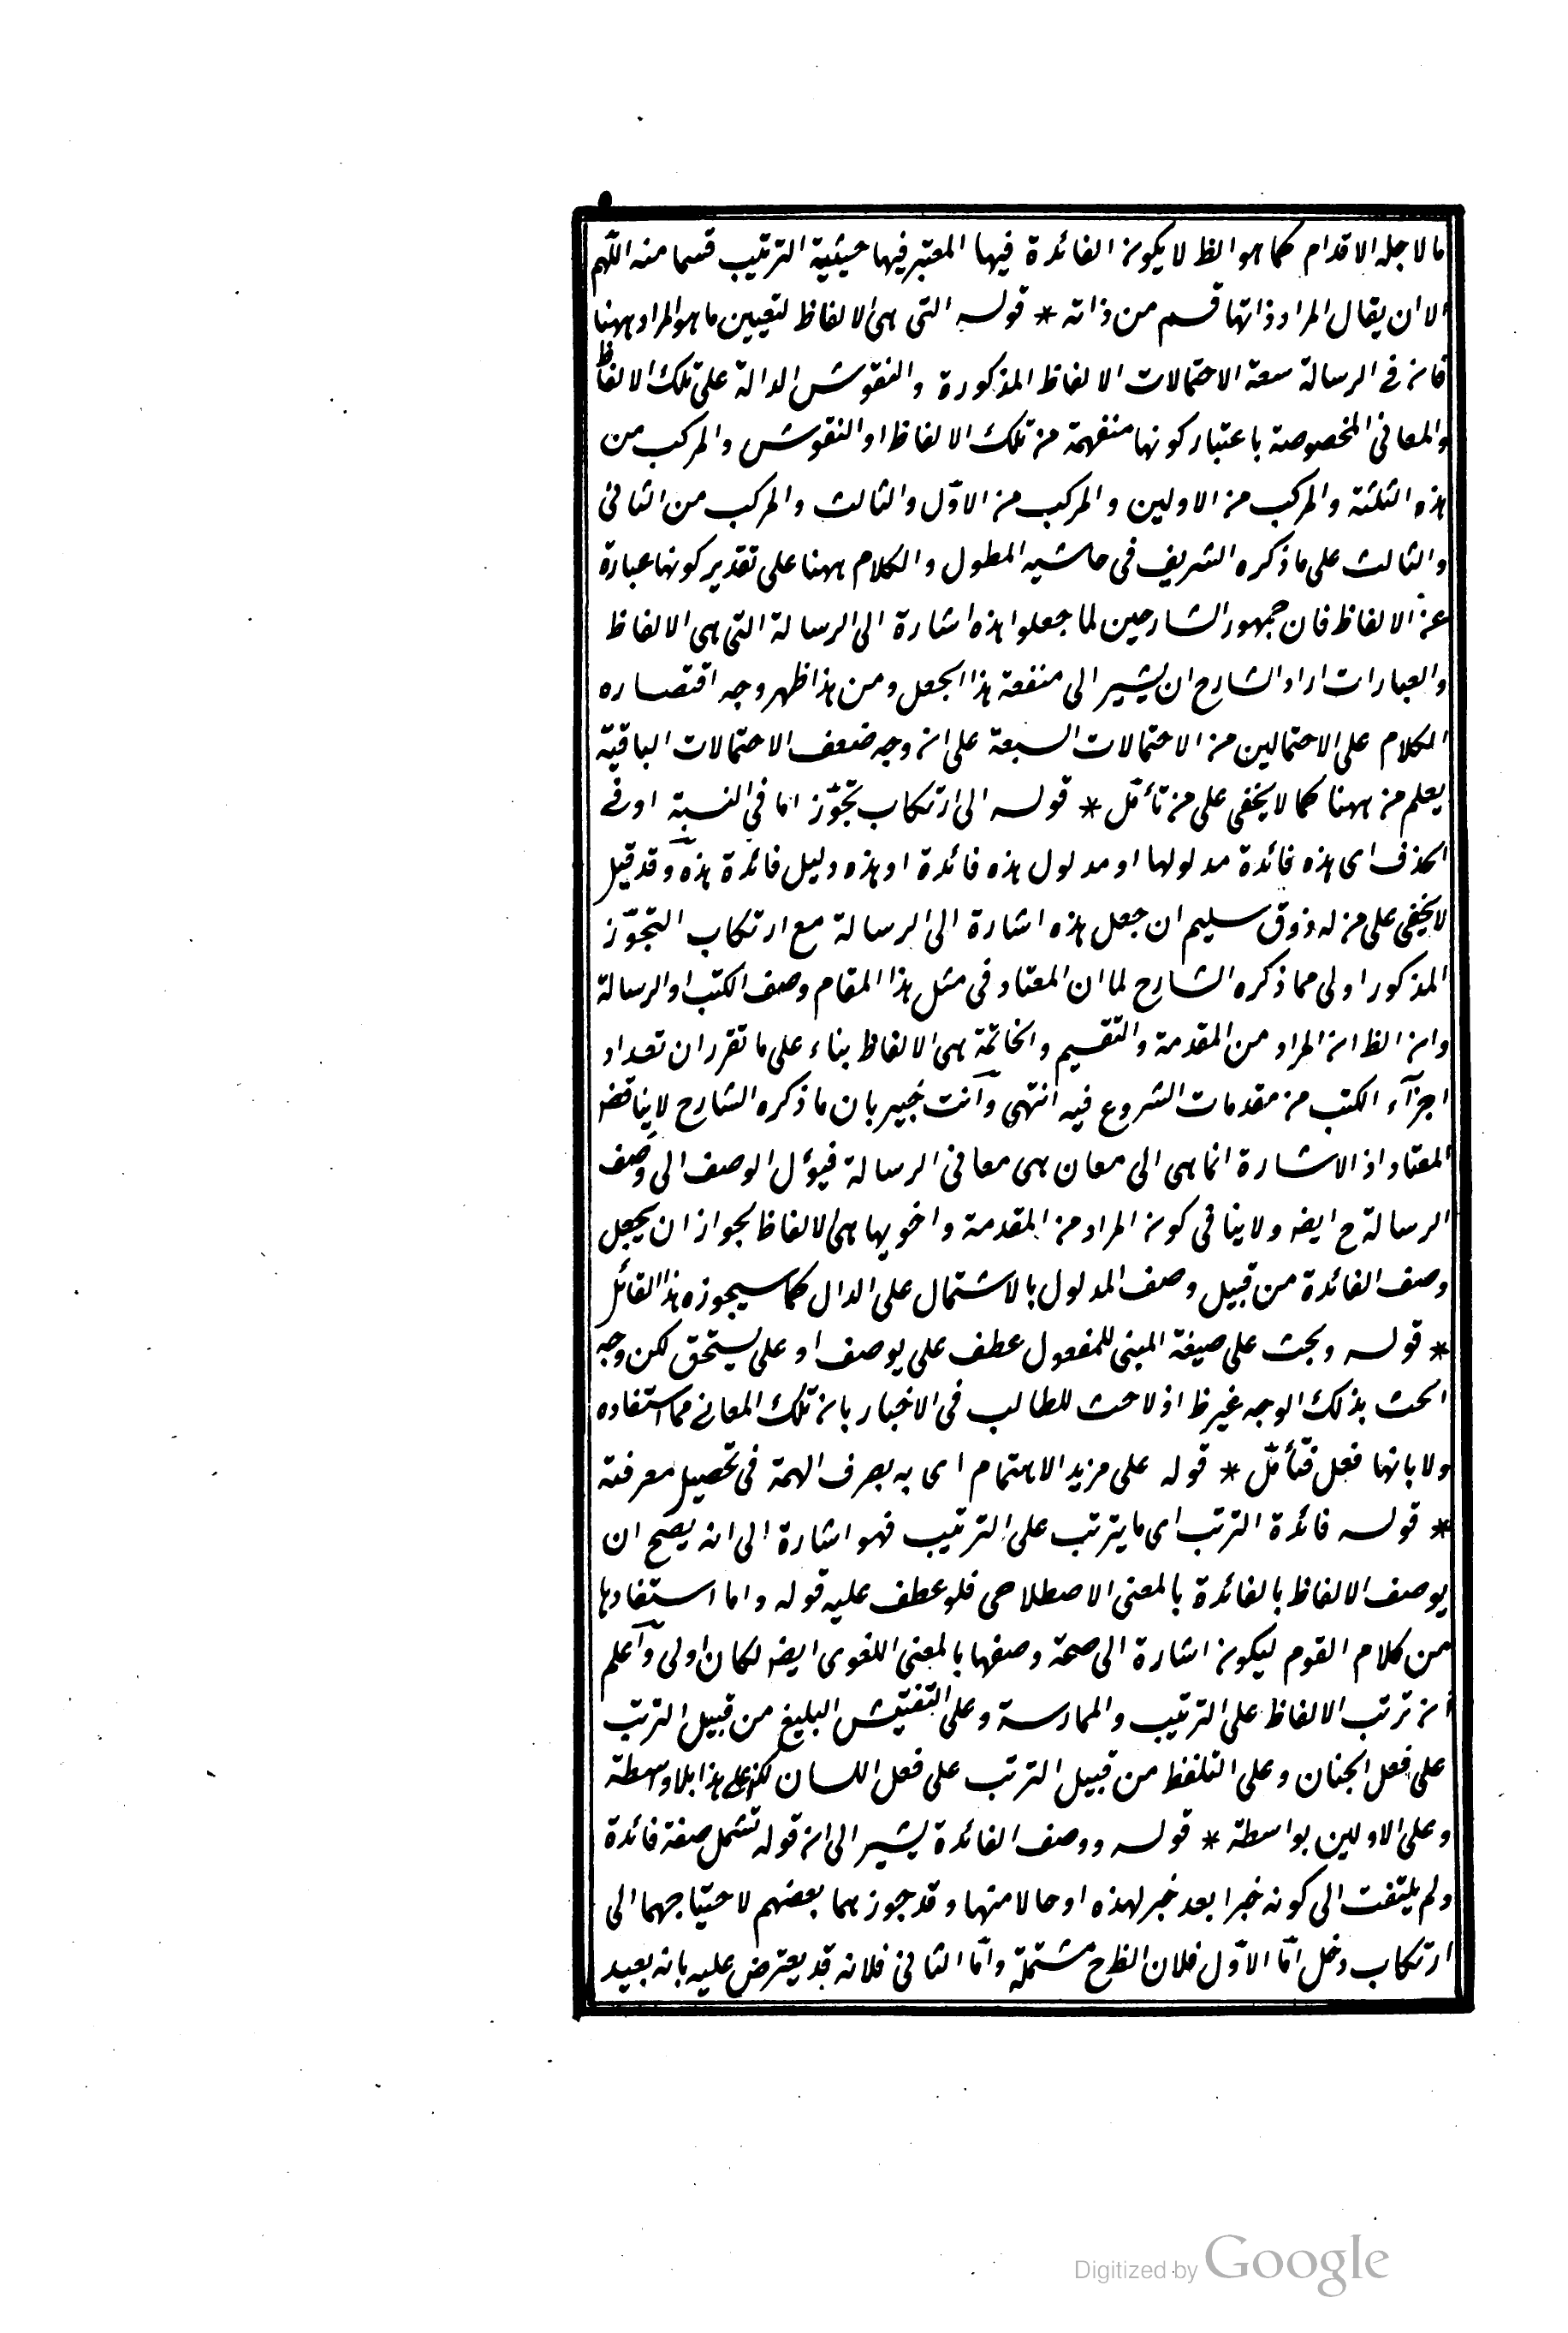 ما لاجله الاقدام كما هو الظ لا يكون الفائدة فيها المعتبر فيها حيثية الترتيب قسما منه اللهم
الا ان يقال المراد ذاتها قسم من ذاته * قوله التى هى الالفاظ لتعيين ما هو المراد ههنا
فان فى الرسالة سعة الاحتمالات الالفاظ المذكورة والنقوش الدالة على تلك الالفاظ
والمعانى المخصوصة باعتبار كونها منفهمة من تلك الالفاظ او النقوش والمركب من
هذه الثلثة والمركب من الاولين والمركب من الاوّل والثالث والمركب من الثانى
والثالث على ما ذكره الشريف فى حاشيه المطول والكلام ههنا على تقدير كونها عبارة
عن الالفاظ فان جمهور الشارحين لما جعلوا هذه اشارة الى الرسالة التى هى الالفاظ
والعبارات اراد الشارح ان يشير الى منفعة هذا الجعل ومن هذا ظهر وجه اقتصاره
الكلام على الاحتمالين من الاحتمالات السبعة على ان وجه ضعف الاحتمالات الباقية
يعلم من ههنا كما لا يخفى على من تأمّل * قوله الى ارتكاب تجوّز اما فى النسبة او فى
الحذف اى هذه فائدة مدلولها او مدلول هذه فائدة او هذه دليل فائدة هذه وقد قيل
لا يخفى على من له ذوق سليم ان جعل هذه اشارة الى الرسالة مع ارتكاب التجوّز
المذكور اولى مما ذكره الشارح لما ان المعتاد فى مثل هذا المقام وصف الكتب او الرسالة
وان الظ ان المراد من المقدمة والتقسيم والخاتمة هى الالفاظ بناء على ما تقرر ان تعداد
اجزآء الكتب من مقدمات الشروع فيه انتهى وانت خبير بان ما ذكره الشارح لا يناقض
المعتاد اذ الاشارة انما هى الى معان هى معانى الرسالة فيؤل الوصف الى وصف
الرسالة ح ايضه ولا ينافى كون المراد من المقدمة واخويها هى الالفاظ لجواز ان يجعل
وصف الفائدة من قبيل وصف المدلول بالاشتمال على الدال كما سيجوزه هذا القائل
* قوله وبحث على صيغة المبنى للمفعول عطف على يوصف او على يستحق لكن وجه
الحث بذلك الوجه غير ظ اذ لا حث للطالب فى الاخبار بان تلك المعانى مما استفاده
ولا بانها فعل فتأمّل * قوله على مزيد الاهتمام اى به بصرف الهمة فى تحصيل معرفته
* قوله فائدة الترتب اى ما يترتب على الترتيب فهو اشارة الى انه يصح ان
يوصف الالفاظ بالفائدة بالمعنى الاصطلاحى فلو عطف عليه قوله واما استفادها
من كلام القوم ليكون اشارة الى صحة وصفها بالمعنى اللغوى ايضه لكان اولى واعلم
ان ترتب الالفاظ على الترتيب والممارسة وعلى التفتيش البليغ من قبيل الترتب
على فعل الجنان وعلى التلفظ من قبيل الترتب على فعل اللسان لكن على هذا بلا واسطة
وعلى الاولين بواسطة * قوله ووصف الفائدة يشير الى ان قوله تشمل صفة فائدة
ولم يلتفت الى كونه خبرا بعد خبر لهذه او حالا منها وقد جوز هما بعضهم لاحتياجهما الى
ارتكاب دخل امّا الاوّل فلان الظ ح مشتملة وامّا الثانى فلانه قد يعترض عليه بانه بعيد
Digitized by Google